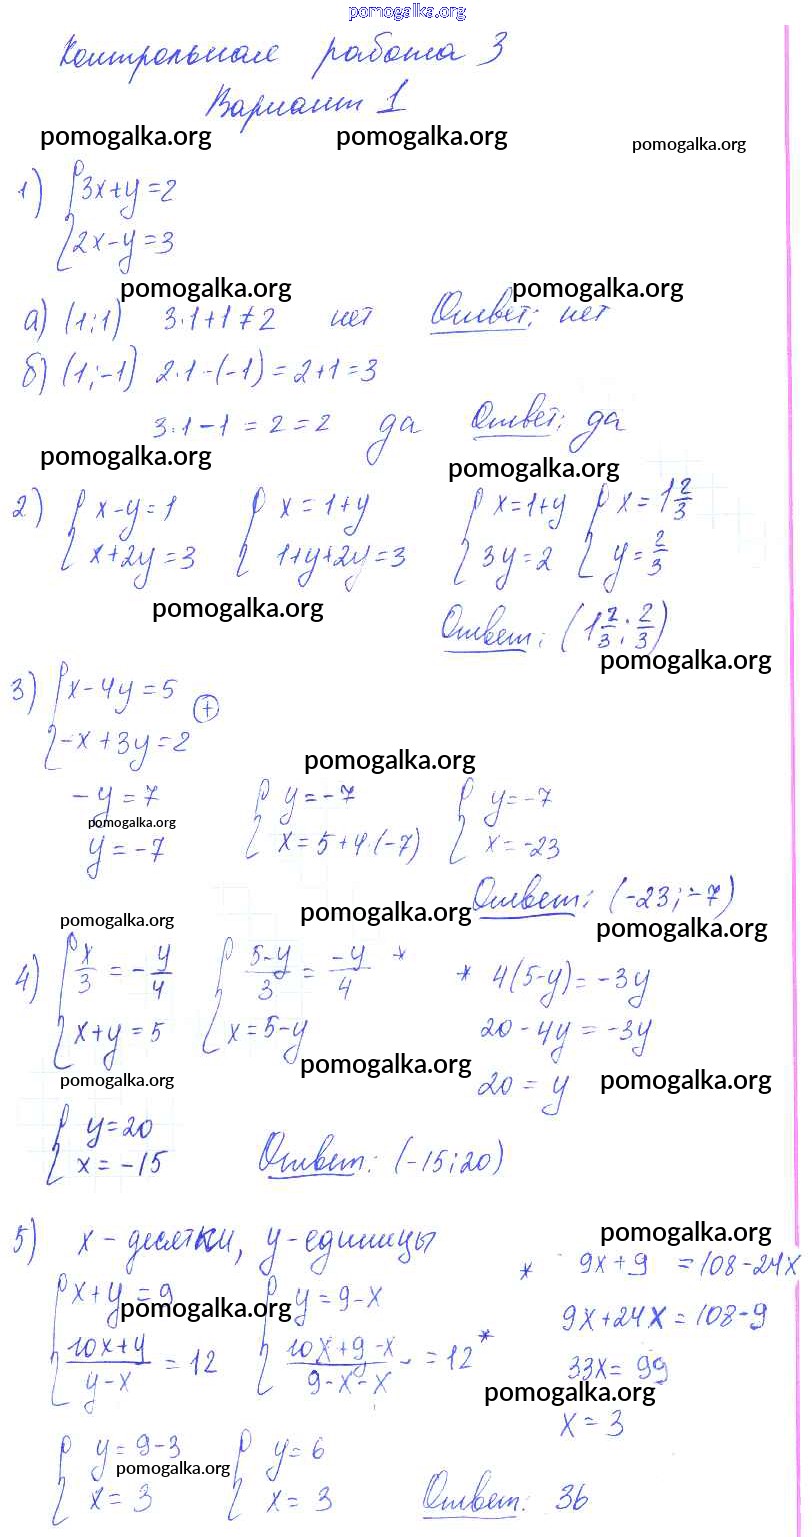 pomogalka.org
Контрольная работа 3
Вариант 1
pomogalka.org pomogalka.org pomogalka.org
1) { 3x+y=2
2x-y=3
pomogalka.org pomogalka.org
а) (1;1) 3·1+1≠2 нет Ответ: нет
б) (1;-1) 2·1-(-1)=2+1=3
3·1-1=2=2 да Ответ: да
pomogalka.org pomogalka.org
2) { x-y=1 { x=1+y { x=1+y { x=1 2/3
x+2y=3 1+y+2y=3 3y=2 y=2/3
pomogalka.org
Ответ: (1 2/3; 2/3)
pomogalka.org
3) { x-4y=5
-x+3y=2 (+)
pomogalka.org
-y=7 { y=-7 { y=-7
pomogalka.org
y=-7 x=5+4·(-7) x=-23
Ответ: (-23;-7)
pomogalka.org pomogalka.org pomogalka.org
4) { x/3 = -y/4 { (5-y)/3 = -y/4 * * 4(5-y)=-3y
x+y=5 x=5-y 20-4y=-3y
pomogalka.org pomogalka.org pomogalka.org
20=y
{ y=20
x=-15 Ответ: (-15;20)
pomogalka.org
5) x-десятки, y-единицы
{ x+y=9 { y=9-x * 9x+9 =108-24x
pomogalka.org
9x+24x=108-9
(10x+y)/(y-x) =12 (10x+9-x)/(9-x-x) =12 *
33x=99
pomogalka.org
x=3
{ y=9-3 { y=6
pomogalka.org
x=3 x=3 Ответ: 36